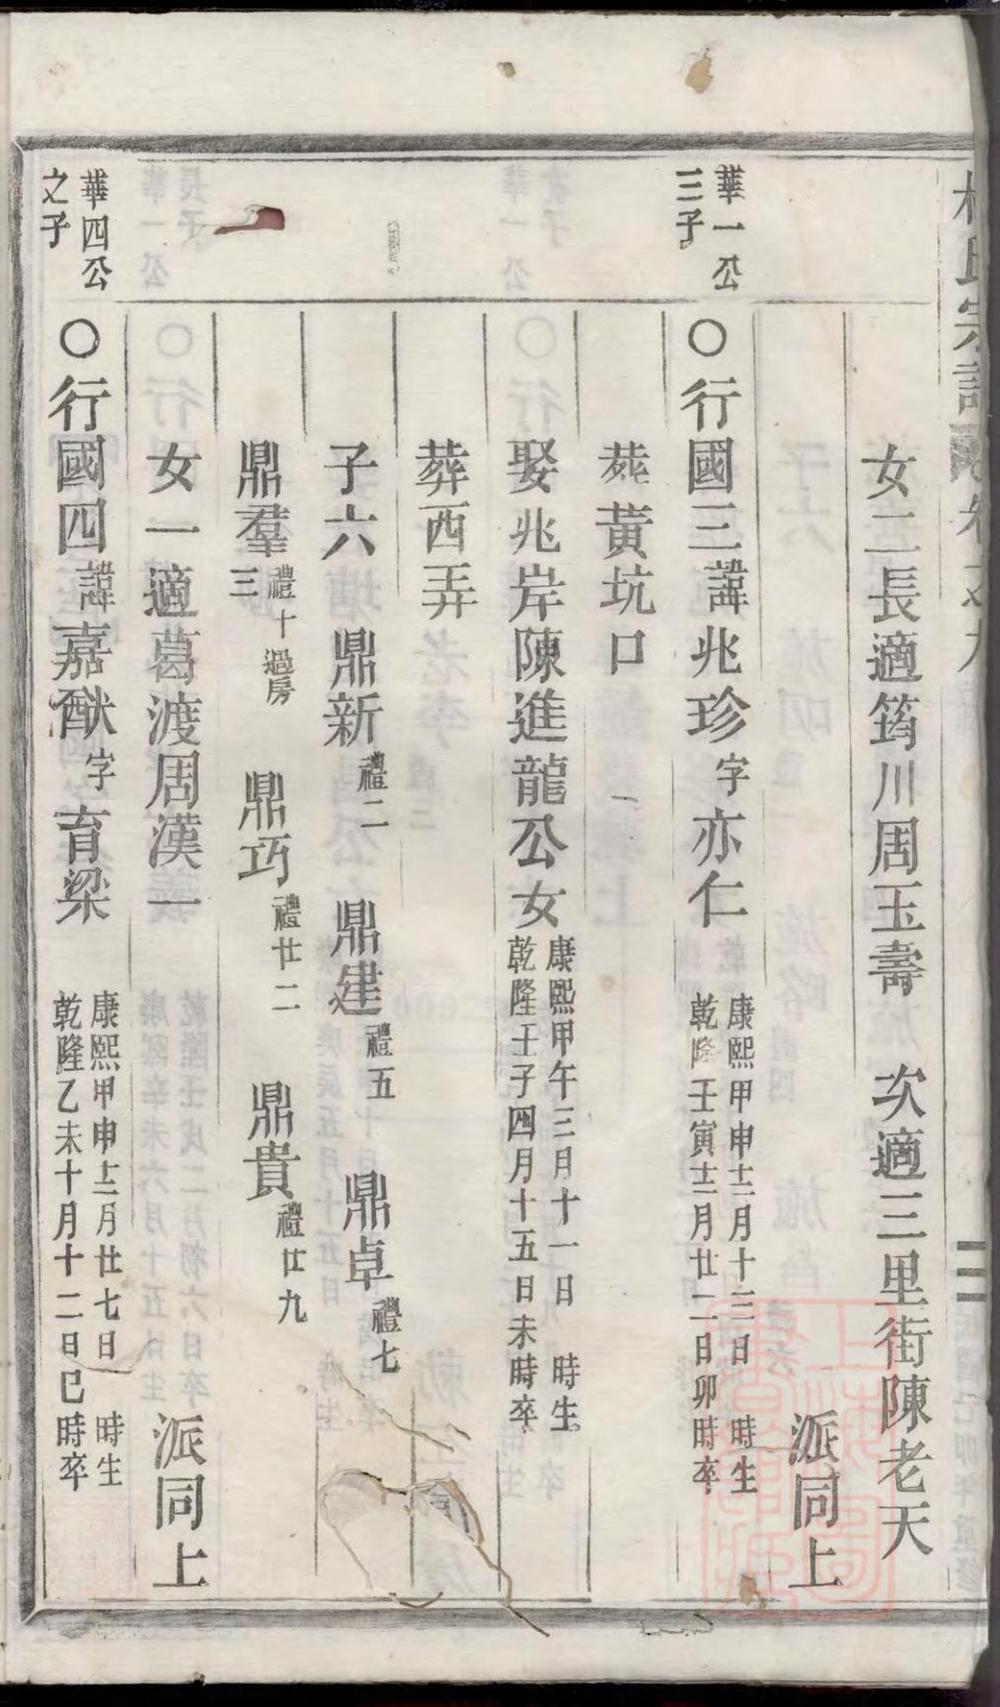 女二長適筠川周玉壽　次適三里街陳老天
派同上
華一公三子
○行國三諱兆珍字亦仁　康熙甲申十二月十三日　時生　乾隆壬寅十二月廿二日卯時卒
葬黃坑口
娶兆岸陳進龍公女　康熙甲午三月十一日　時生　乾隆壬子四月十五日未時卒
葬西弄
子六　鼎新禮二　鼎建禮五　鼎卓禮七
鼎羣禮十三過房　鼎巧禮廿二　鼎貴禮廿九
女一適葛渡周漢一　派同上
華四公之子
○行國四諱嘉猷字育梁　康熙甲申十二月廿七日　時生　乾隆乙未十月十二日巳時卒